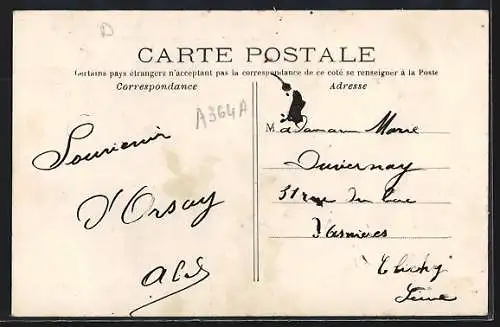 D
CARTE POSTALE
Certains pays étrangers n'acceptant pas la correspondance de ce coté se renseigner à la Poste
Correspondance
Adresse
A364A
Souvenir
d'Orsay
Madame Marie
Duvernay
51 rue du bac
d'Asnières
Clichy
Seine